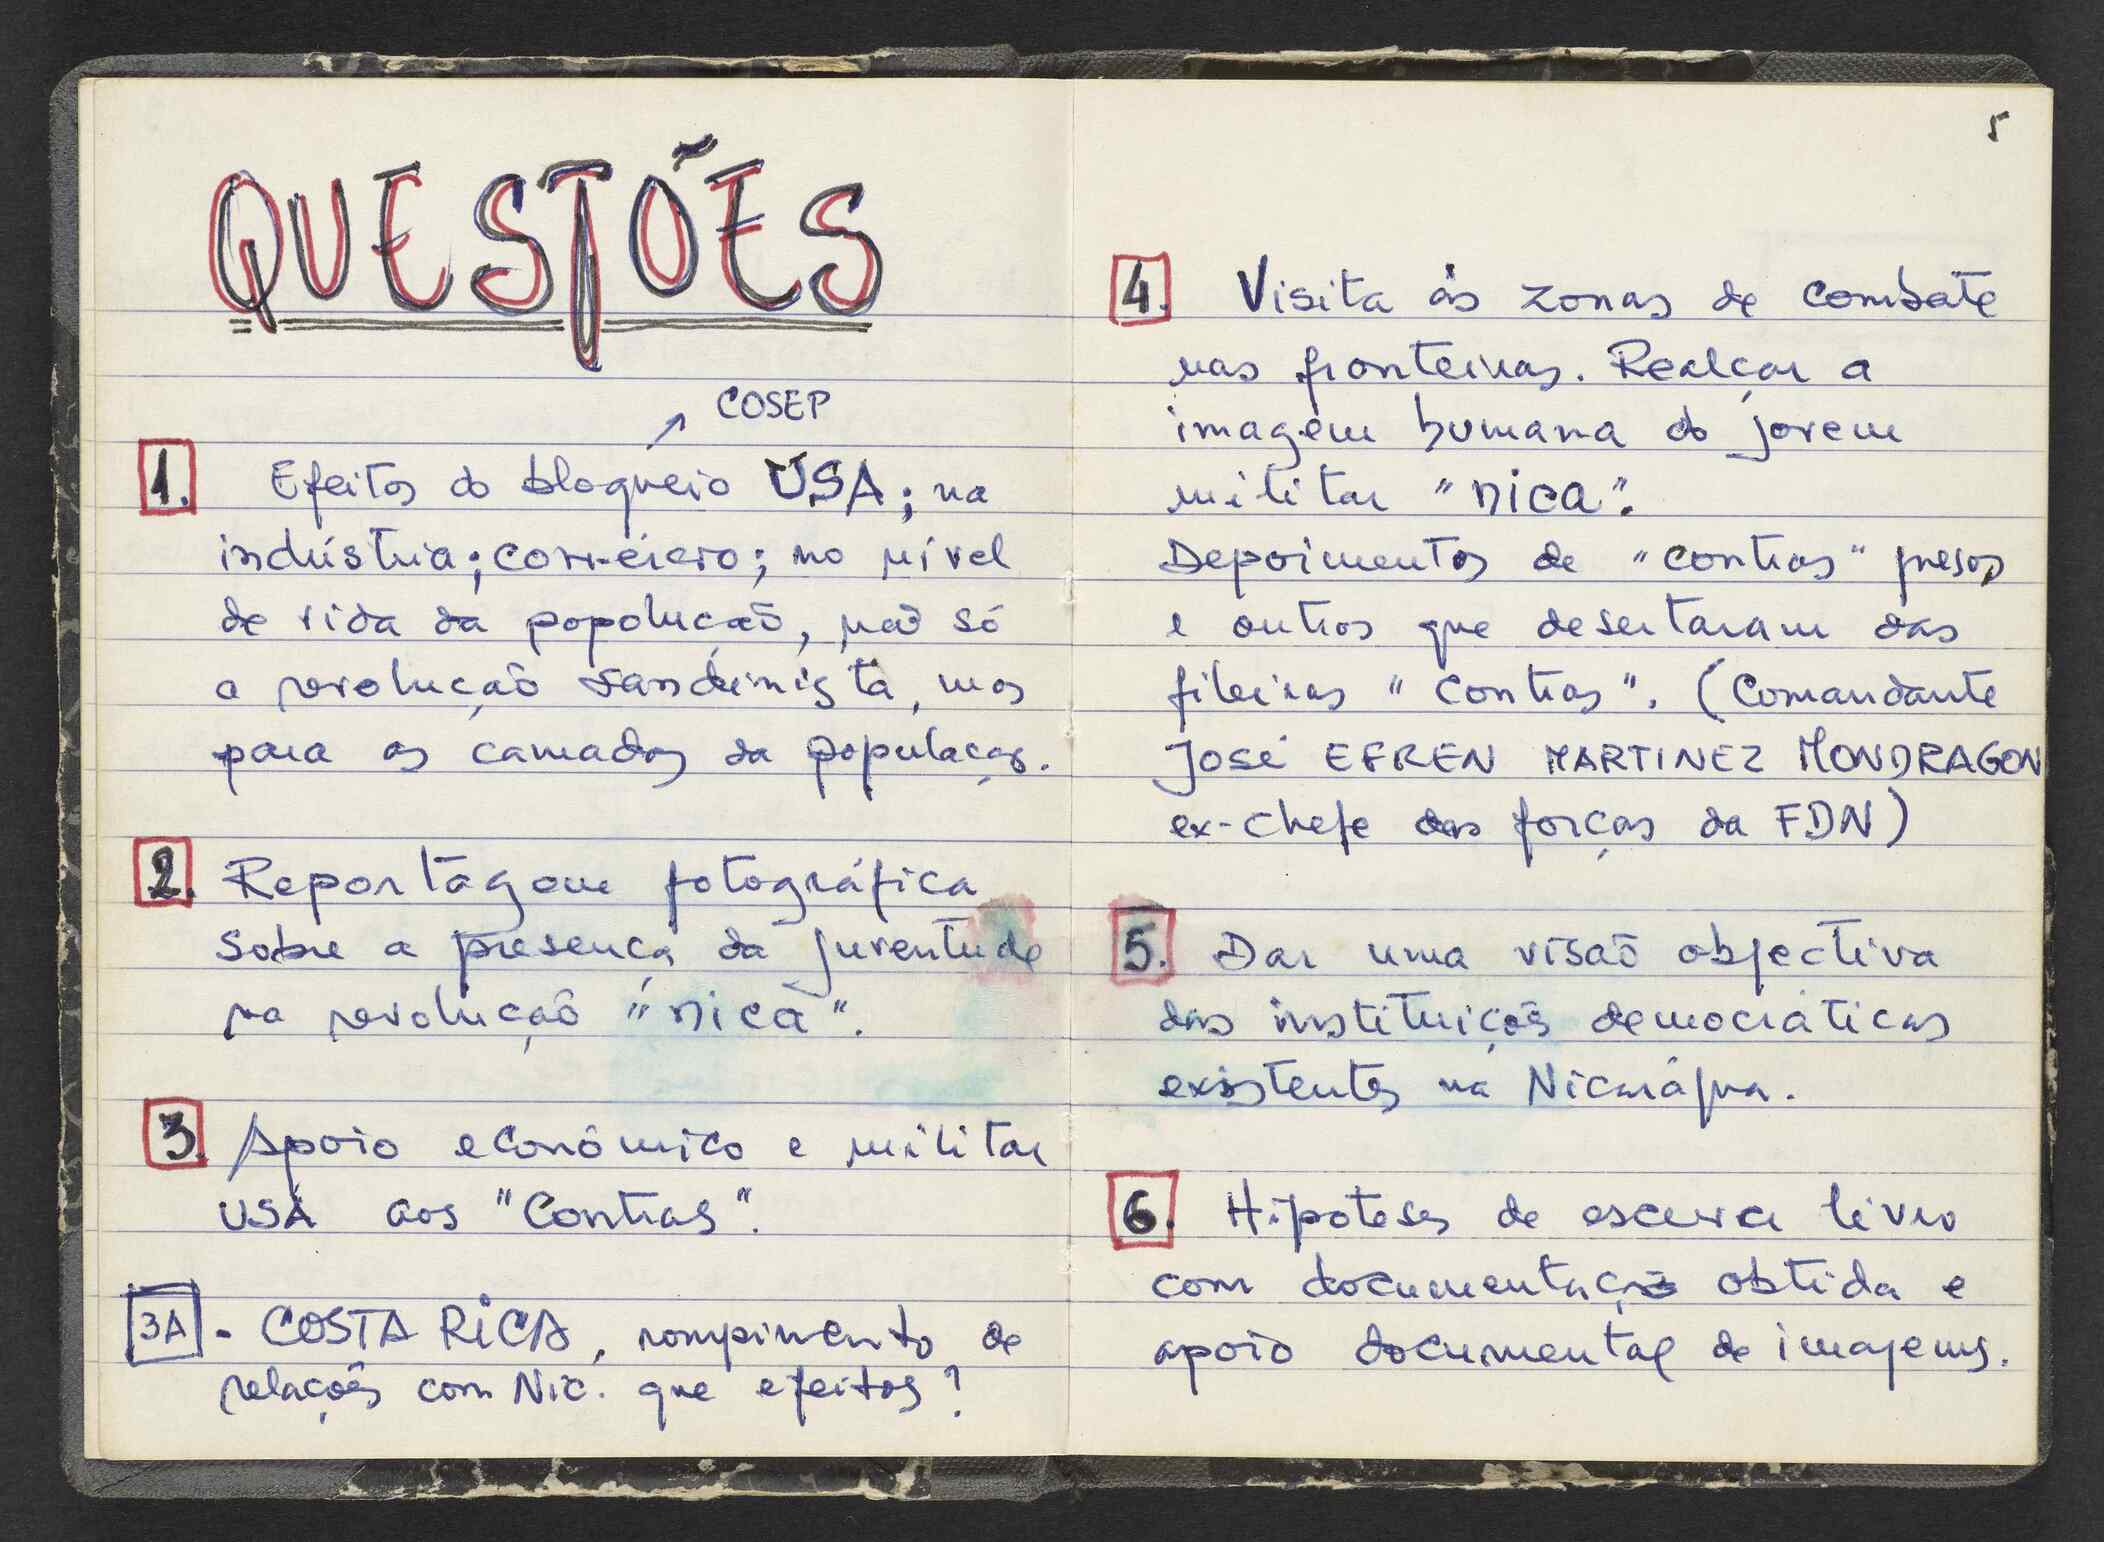 QUESTÕES
COSEP
1. Efeitos do bloqueio USA; na
indústria; comércio; no nível
de vida da popolução, não só
a revolução sandinista, mas
para as camadas da população.
2. Reportagem fotográfica
sobre a presença da juventude
na revolução "nica".
3. Apoio económico e militar
USA aos "Contras".
3A - COSTA RICA, rompimento de
relações com Nic. que efeitos?
5
4. Visita às zonas de combate
nas fronteiras. Realçar a
imagem humana do jovem
militar "nica".
Depoimentos de "contras" presos
e outros que desertaram das
fileiras "contras". (Comandante
José EFREN MARTINEZ MONDRAGON
ex-chefe das forças da FDN)
5. Dar uma visão objectiva
das instituições democráticas
existentes na Nicarágua.
6. Hipoteses de escever livro
com documentação obtida e
apoio documental de imagens.